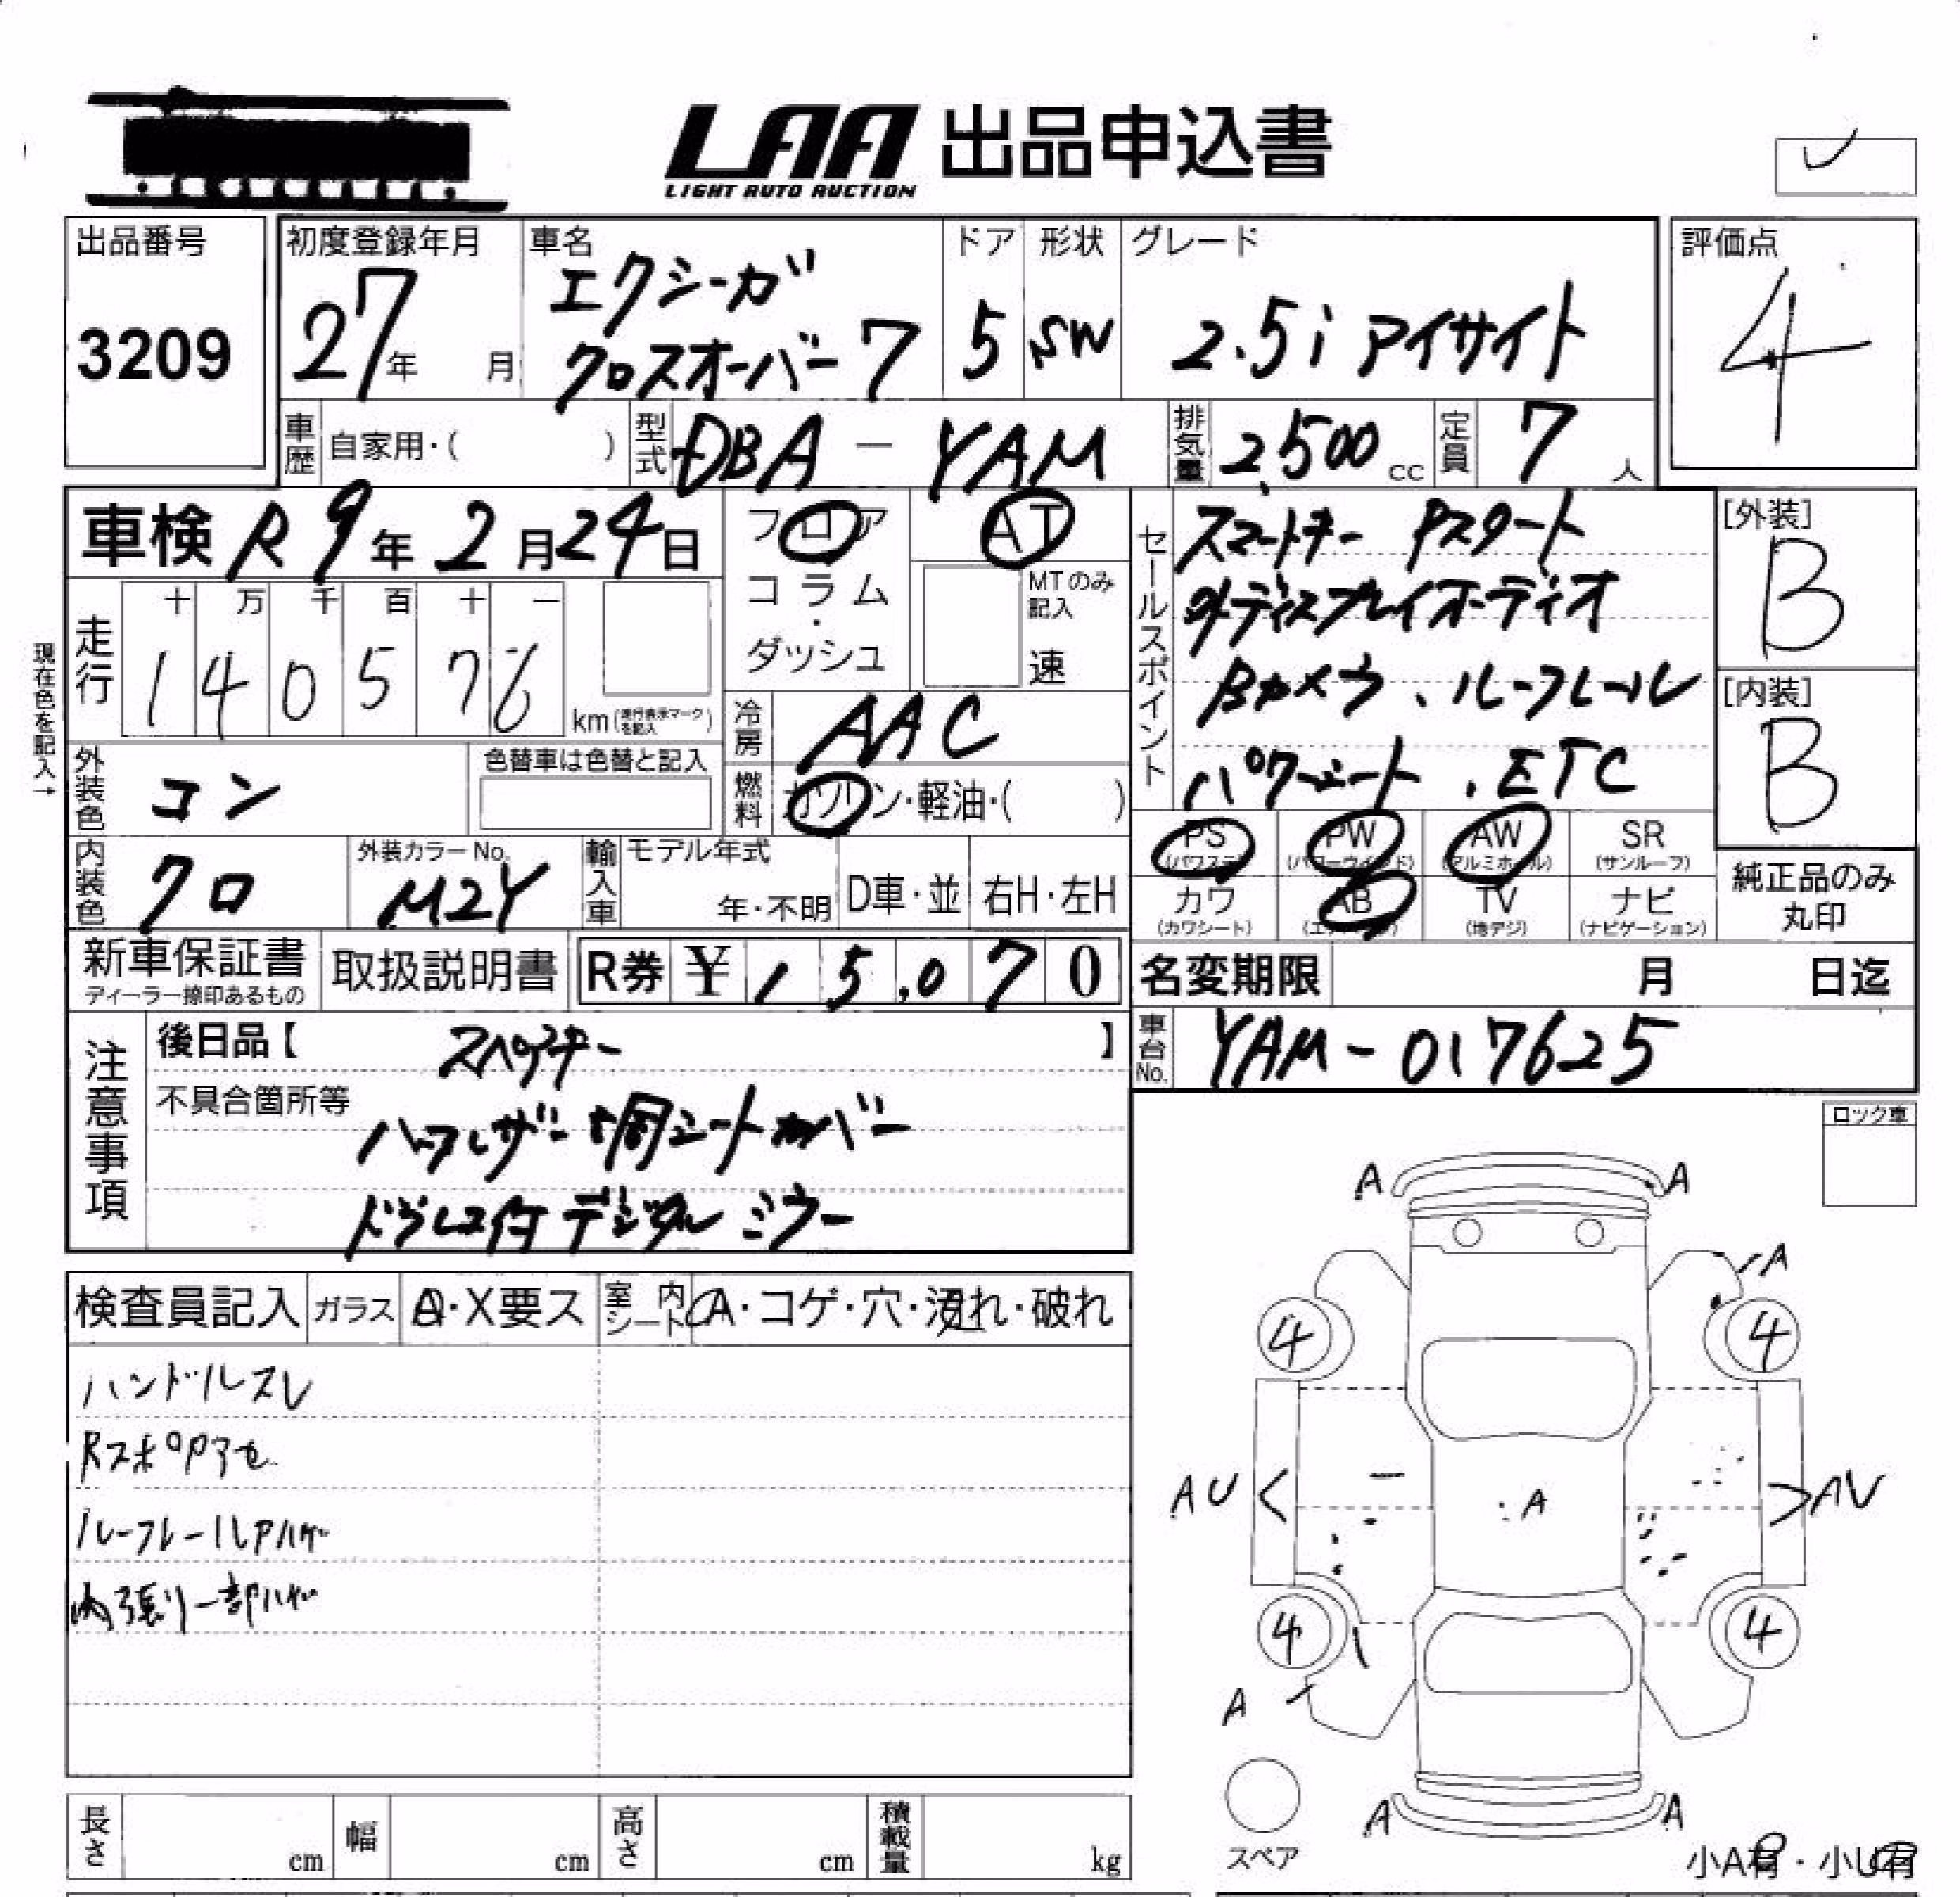 LAA 出品申込書
LIGHT AUTO AUCTION
出品番号
3209
初度登録年月
27年 月
車名
エクシーガ
クロスオーバー7
ドア
5
形状
SW
グレード
2.5i アイサイト
評価点
4
車歴 自家用・( )
型式 DBA - YAM
排気量 2,500 cc
定員 7 人
車検 R9年2月24日
フロア
コラム
・
ダッシュ
AT
MTのみ記入
速
セールスポイント
スマートキー Pスタート
ディスプレイオーディオ
Bカメラ、ルーフレール
パワーシート、ETC
[外装]
B
[内装]
B
現在色を記入→
走行
十 万 千 百 十 一
1 4 0 5 7 6
km (走行表示マークを記入)
冷房 AAC
燃料 ガソリン・軽油・( )
外装色 コン
色替車は色替と記入
内装色 クロ
外装カラーNo.
M2Y
輸入車
モデル年式
年・不明
D車・並
右H・左H
PS (パワステ)
PW (パワーウインド)
AW (アルミホイール)
SR (サンルーフ)
カワ (カワシート)
AB (エアバッグ)
TV (地デジ)
ナビ (ナビゲーション)
純正品のみ
丸印
新車保証書
ディーラー捺印あるもの
取扱説明書
R券 ¥ 15,070
名変期限 月 日迄
車台No. YAM-017625
注意事項
後日品【 スペアキー 】
不具合箇所等
ハーフレザー調シートカバー
ドラレコ付デジタルミラー
ロック車
検査員記入
ガラス A・X要ス
室内シート A・コゲ・穴・汚れ・破れ
ハンドルスレ
RスポイラーA
ルーフレールAハゲ
内張り一部ハゲ
A A
A
4 4
AU AU
A
4 4
A
A A
スペア
小A有・小U有
長さ cm
幅 cm
高さ cm
積載量 kg